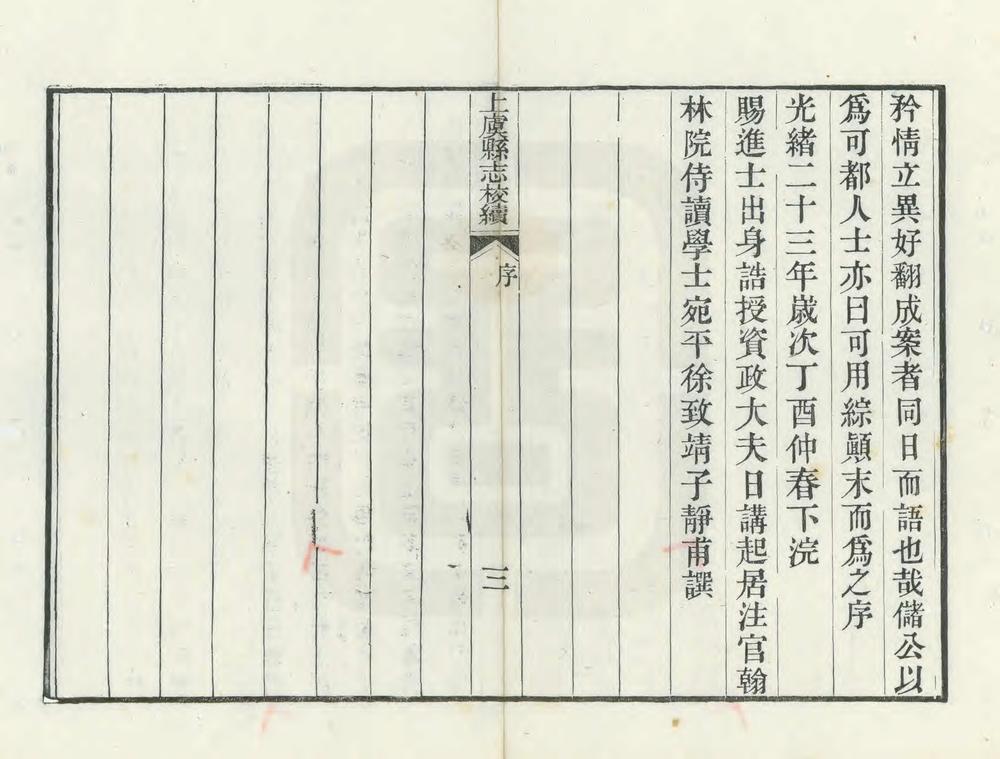 矜情立異好翻成案者同日而語也哉儲公以
爲可都人士亦曰可用綜顚末而爲之序
光緒二十三年歲次丁酉仲春下浣
賜進士出身誥授資政大夫日講起居注官翰
林院侍讀學士宛平徐致靖子靜甫譔
上虞縣志校續
序
三